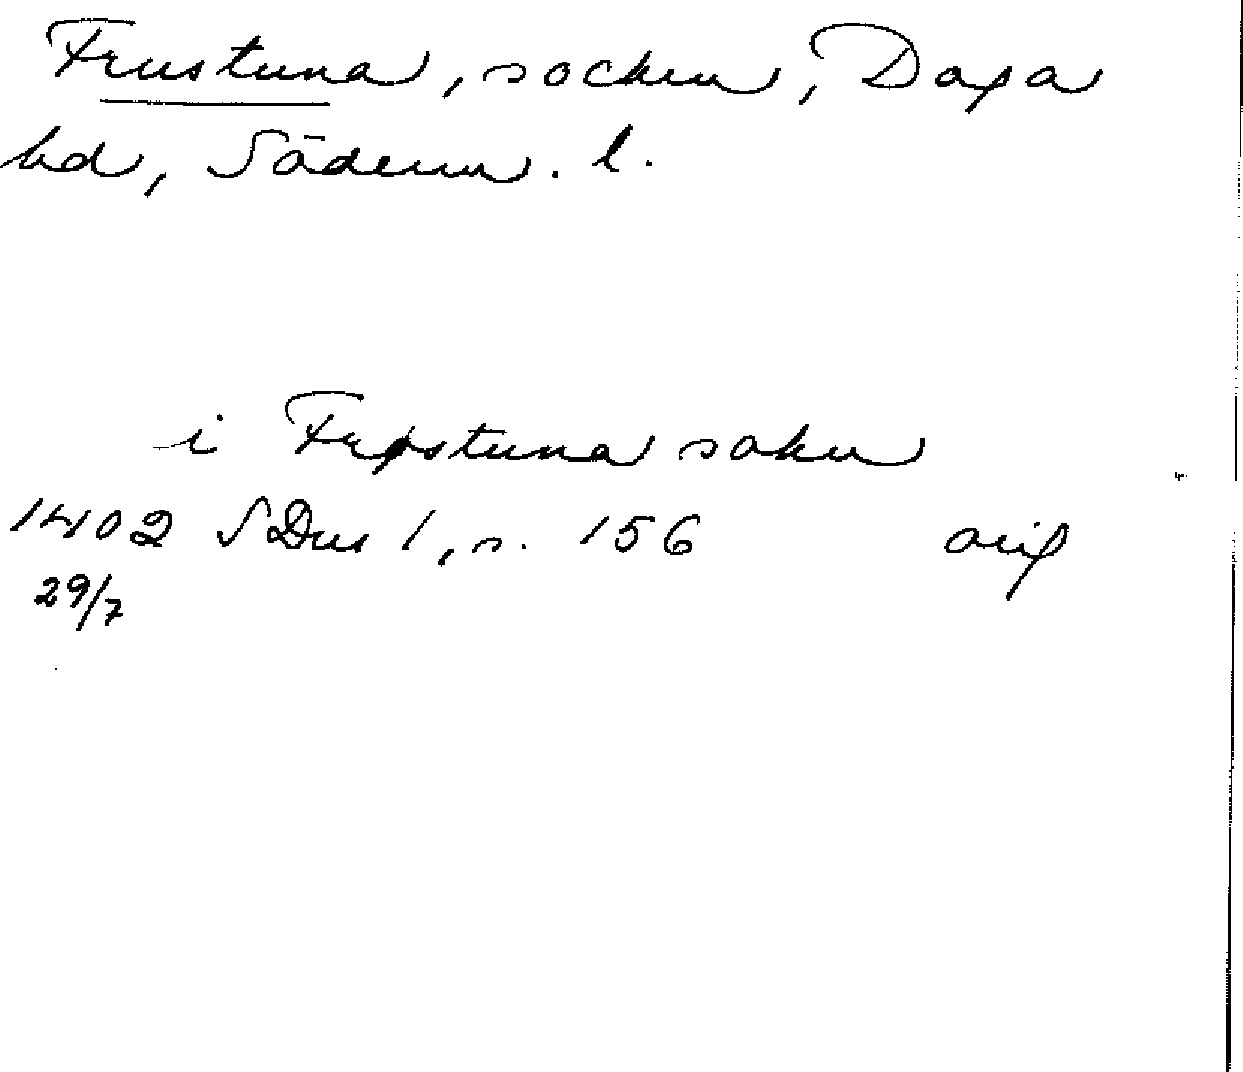 Frustuna, socken, Daga
hd, Söderm. l.
i Frøstuna sokn
1402 SDns 1, s. 156 orig
29/7